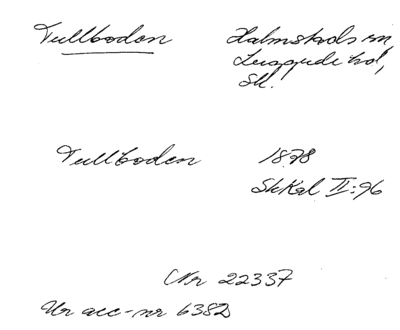 Tullbodan Halmstads sn,
Luggude hd,
Sk.
Tullbodan 1878
SkKal II:96
Nr 22337
Ur acc-nr 6382